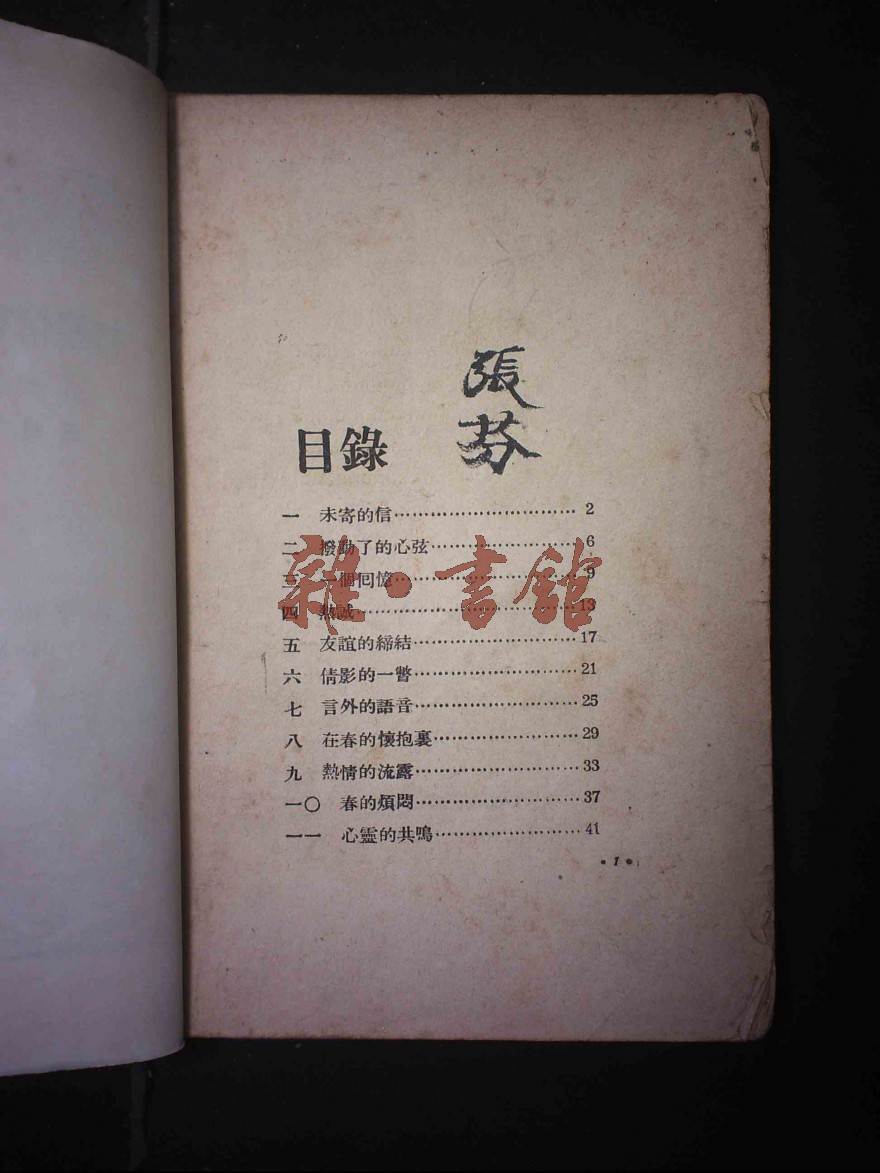 張
芬
目錄
一 未寄的信 2
二 撥動了的心弦 6
三 一個回憶 9
四 熱誠 13
五 友誼的締結 17
六 倩影的一瞥 21
七 言外的語音 25
八 在春的懷抱裏 29
九 熱情的流露 33
一〇 春的煩悶 37
一一 心靈的共鳴 41
• 1 •
雜·書館